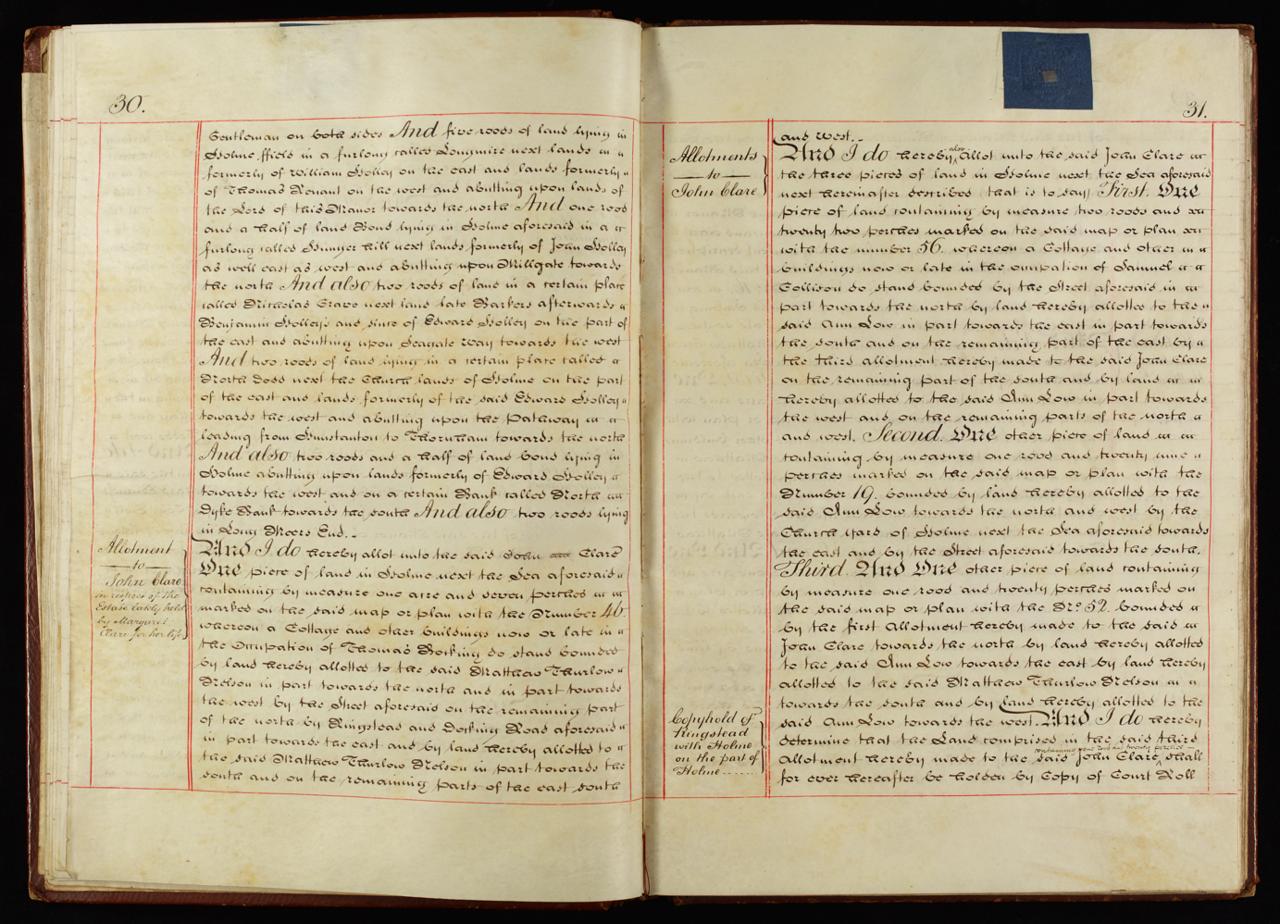 30.
Gentleman on both sides And five roods of land lying in
Holme ffield in a furlong called Longmire next lands
formerly of William Holley on the east and lands formerly
of Thomas on the west and abutting upon lands of
the Lord of this Manor towards the north And one rood
and a half of land Bond lying in Holme aforesaid in a
furlong called Hunger hill next lands formerly of John Holley
as well east as west and abutting upon Millgate towards
the north And also two roods of land in a certain place
called Nicholas Grave next land late Barkers afterwards
Benjamin Holley's and since of Edward Holley on the part of
the east and abutting upon Seagate Way towards the west
And two roods of land lying in a certain place called
North Dodd next the Church lands of Holme on the part
of the east and lands formerly of the said Edward Holley
towards the west and abutting upon the Pathway
leading from Hunstanton to Thornham towards the north
And also two roods and a half of land bond lying in
Holme abutting upon lands formerly of Edward Holley
towards the west and on a certain Bank called North
Dyke Bank towards the south And also two roods lying
in Long Meers End.
Allotment
to
John Clare
in respect of the
Estate lately held
by Margaret
Clare for her life
And I do hereby allot unto the said John Clare
One piece of land in Holme next the Sea aforesaid
containing by measure one acre and seven perches
marked on the said map or plan with the Number 46
whereon a Cottage and other buildings now or late in
the Occupation of Thomas do stand bounded
by land hereby allotted to the said Matthew Thurlow
Nelson in part towards the north and in part towards
the west by the Street aforesaid on the remaining part
of the north by Ringstead and Docking Road aforesaid
in part towards the east and by land hereby allotted to
the said Matthew Thurlow Nelson in part towards the
south and on the remaining parts of the east south
31.
and west.
Allotments
to
John Clare
And I do hereby also Allot unto the said John Clare
the three pieces of land in Holme next the Sea aforesaid
next hereinafter described (that is to say) First. One
piece of land containing by measure two roods and
twenty two perches marked on the said map or plan
with the number 56. whereon a Cottage and other
buildings now or late in the occupation of Samuel
Collison do stand bounded by the Street aforesaid in
part towards the north by land hereby allotted to the
said Ann Low in part towards the east in part towards
the south and on the remaining part of the east by
the third allotment hereby made to the said John Clare
on the remaining part of the south and by land
hereby allotted to the said Ann Low in part towards
the west and on the remaining parts of the north
and west. Second. One other piece of land
containing by measure one rood and twenty nine
perches marked on the said map or plan with the
Number 19. bounded by land hereby allotted to the
said Ann Low towards the north and west by the
Church yard of Holme next the Sea aforesaid towards
the east and by the Street aforesaid towards the south.
Third. And One other piece of land containing
by measure one rood and twenty perches marked on
the said map or plan with the No. 52. bounded
by the first Allotment hereby made to the said
John Clare towards the north by land hereby allotted
to the said Ann Low towards the east by land hereby
allotted to the said Matthew Thurlow Nelson
towards the south and by land hereby allotted to the
said Ann Low towards the west. And I do hereby
Copyhold of
Ringstead
with Holme
on the part of
Holme
determine that the Land comprised in the said third
containing one rood and twenty perches
Allotment hereby made to the said John Clare, shall
for ever hereafter be holden by Copy of Court Roll